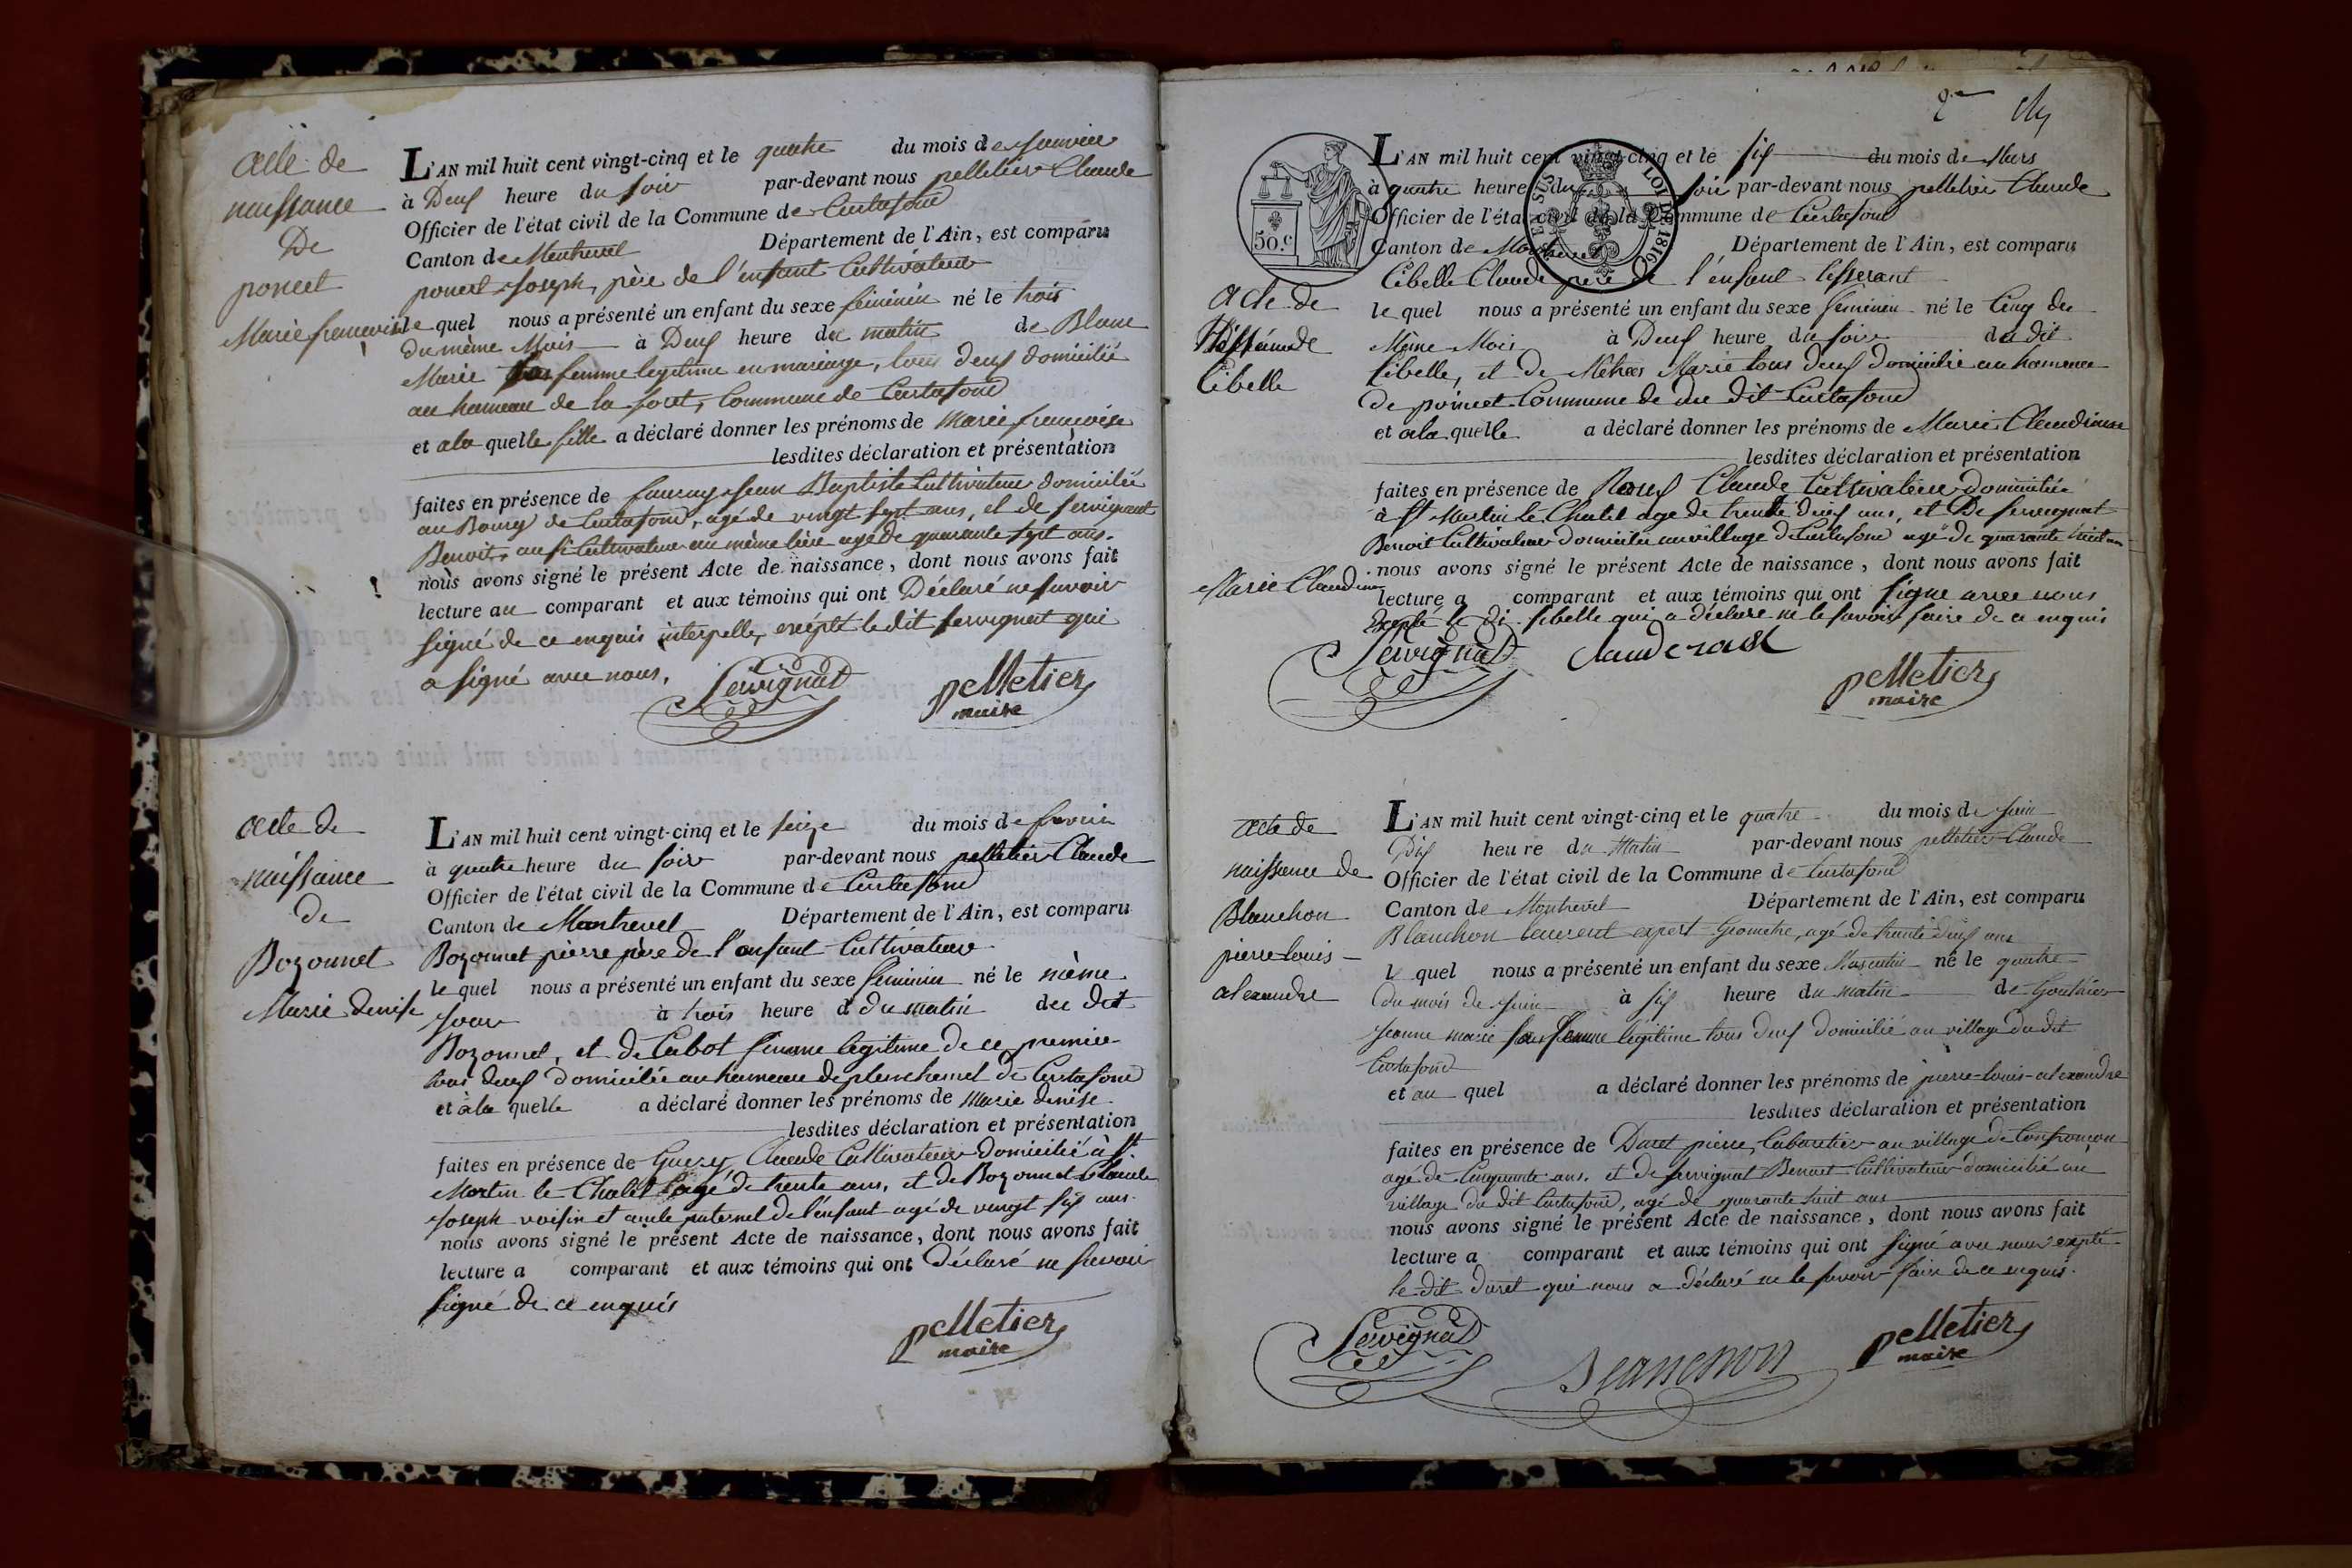 acte de
naissance
De
poncet
Marie francoise
L'AN mil huit cent vingt-cinq et le quatre du mois de Janvier
à Deux heure du soir par-devant nous pelletier Claude
Officier de l'état civil de la Commune de Curtafond
Canton de Montrevel Département de l'Ain, est comparu
poncet Joseph, père de l'enfant Cultivateur
le quel nous a présenté un enfant du sexe féminin né le trois
du même Mois à Deux heure du matin de Blanc
Marie sa femme legitime en mariage, tous deux domicilié
au hameau de la foret, Commune de Curtafond
et a la quelle fille a déclaré donner les prénoms de Marie francoise
lesdites déclaration et présentation
faites en présence de Jean Baptiste Cultivateur domicilié
au Bourg de Curtafond, agé de vingt sept ans, et de servignat
Benoit, aussi Cultivateur au même lieu agé de quarante sept ans.
nous avons signé le présent Acte de naissance, dont nous avons fait
lecture au comparant et aux témoins qui ont Déclaré ne savoir
signé de ce enquis interpelle, excépté le dit servignat qui
a signé avec nous.
Servignat pelletier
maire
acte de
naissance
de
Bozonnet
Marie denise
L'AN mil huit cent vingt-cinq et le seize du mois de fevrier
à quatre heure du soir par-devant nous pelletier Claude
Officier de l'état civil de la Commune de Curtafond
Canton de Montrevel Département de l'Ain, est comparu
Bozonnet pierre père de l'enfant Cultivateur
le quel nous a présenté un enfant du sexe feminin né le même
jour à trois heure d du matin du dit
Bozonnet, et de Cabot femme legitime de ce premier
tous deux domicilié au hameau de planchemel de Curtafond
et à la quelle a déclaré donner les prénoms de Marie denise
lesdites déclaration et présentation
faites en présence de Guery, Claude Cultivateur domicilié à St
Martin le Chatel agé de trente ans, et de Bozonnet Claude
Joseph voisin et oncle paternel de l'enfant agé de vingt six ans.
nous avons signé le présent Acte de naissance, dont nous avons fait
lecture a comparant et aux témoins qui ont Déclaré ne savoir
signé de ce enquis
pelletier
maire
2me
50.c
E SUS LOI DE 1816
acte de
Naissance de
Libelle
Marie Claudine
L'AN mil huit cent vingt-cinq et le six du mois de Mars
à quatre heure du soir par-devant nous pelletier Claude
Officier de l'état civil de la Commune de Curtafond
Canton de Montrevel Département de l'Ain, est comparu
Libelle Claude père de l'enfant tisserant
le quel nous a présenté un enfant du sexe feminin né le Cinq du
Même Mois à Deux heure du soir du dit
Libelle, et de Marie tous deux domicilié au hameau
de poincet Commune de du dit Curtafond
et à la quelle a déclaré donner les prénoms de Marie Claudine
lesdites déclaration et présentation
faites en présence de Roux Claude Cultivateur domicilié
à St Martin le Chatel age de trente deux ans, et De servignat
Benoit Cultivateur domicilié au village de Curtafond agé de quarante huit ans
nous avons signé le présent Acte de naissance, dont nous avons fait
lecture a comparant et aux témoins qui ont signe avec nous
Excepté le di Libelle qui a déclare ne le savoir faire de ce enquis
Servignat Claude roux
pelletier
maire
acte de
naissance de
Blanchon
pierre louis
alexandre
L'AN mil huit cent vingt-cinq et le quatre du mois de Juin
Dix heure du Matin par-devant nous pelletier Claude
Officier de l'état civil de la Commune de Curtafond
Canton de Montrevel Département de l'Ain, est comparu
Blanchon laurent expert Geometre, agé de trente deux ans
le quel nous a présenté un enfant du sexe Masculin né le quatre
du mois de Juin à six heure du matin de Gouthier
Jeanne marie sa femme legitime tous deux domicilié au village du dit
Curtafond
et au quel a déclaré donner les prénoms de pierre-louis-alexandre
lesdites déclaration et présentation
faites en présence de Duret pierre, Cabaretier au village de Confrançon
agé de Cinquante ans, et de servignat Benoit Cultivateur domicilié au
village du dit Curtafond, agé de quarante huit ans
nous avons signé le présent Acte de naissance, dont nous avons fait
lecture a comparant et aux témoins qui ont signé avec nous excpté
le dit duret qui nous a déclaré ne le savoir faire de ce enquis.
Servignat Blanchon pelletier
maire